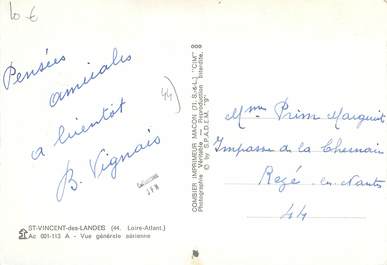 10 €
Pensées
amicales
a bientôt
B. Vignais
44
COMBIER IMPRIMEUR MACON (71. S.-&-L.) "CIM"
Photographie Véritable - Reproduction Interdite.
© by S.P.A.D.E.M. "9"
Mme Prim Marguerit
Impasse de la Chesnaie
Rezé les Nantes
44
ST-VINCENT-des-LANDES (44. Loire-Atlant.)
Ac 001-113 A - Vue générale aérienne